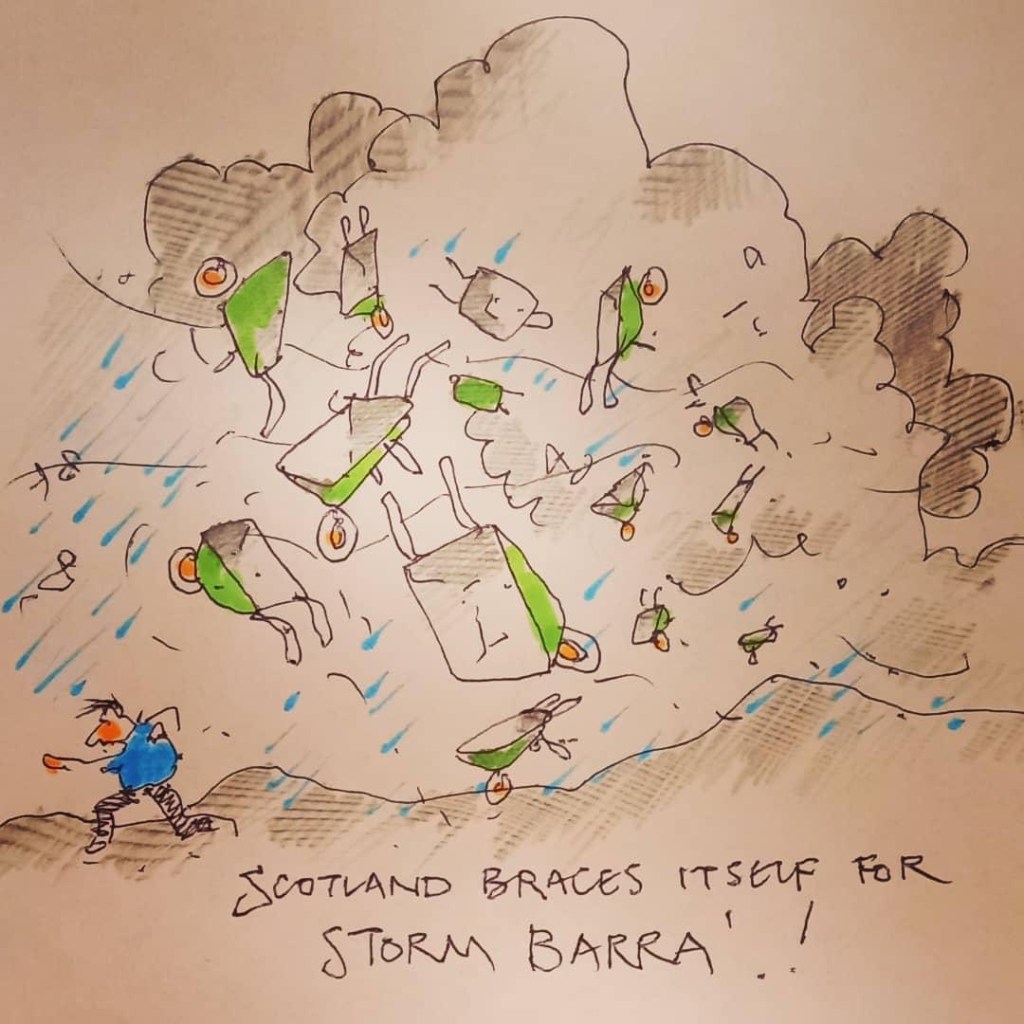 SCOTLAND BRACES ITSELF FOR
STORM BARRA'.!